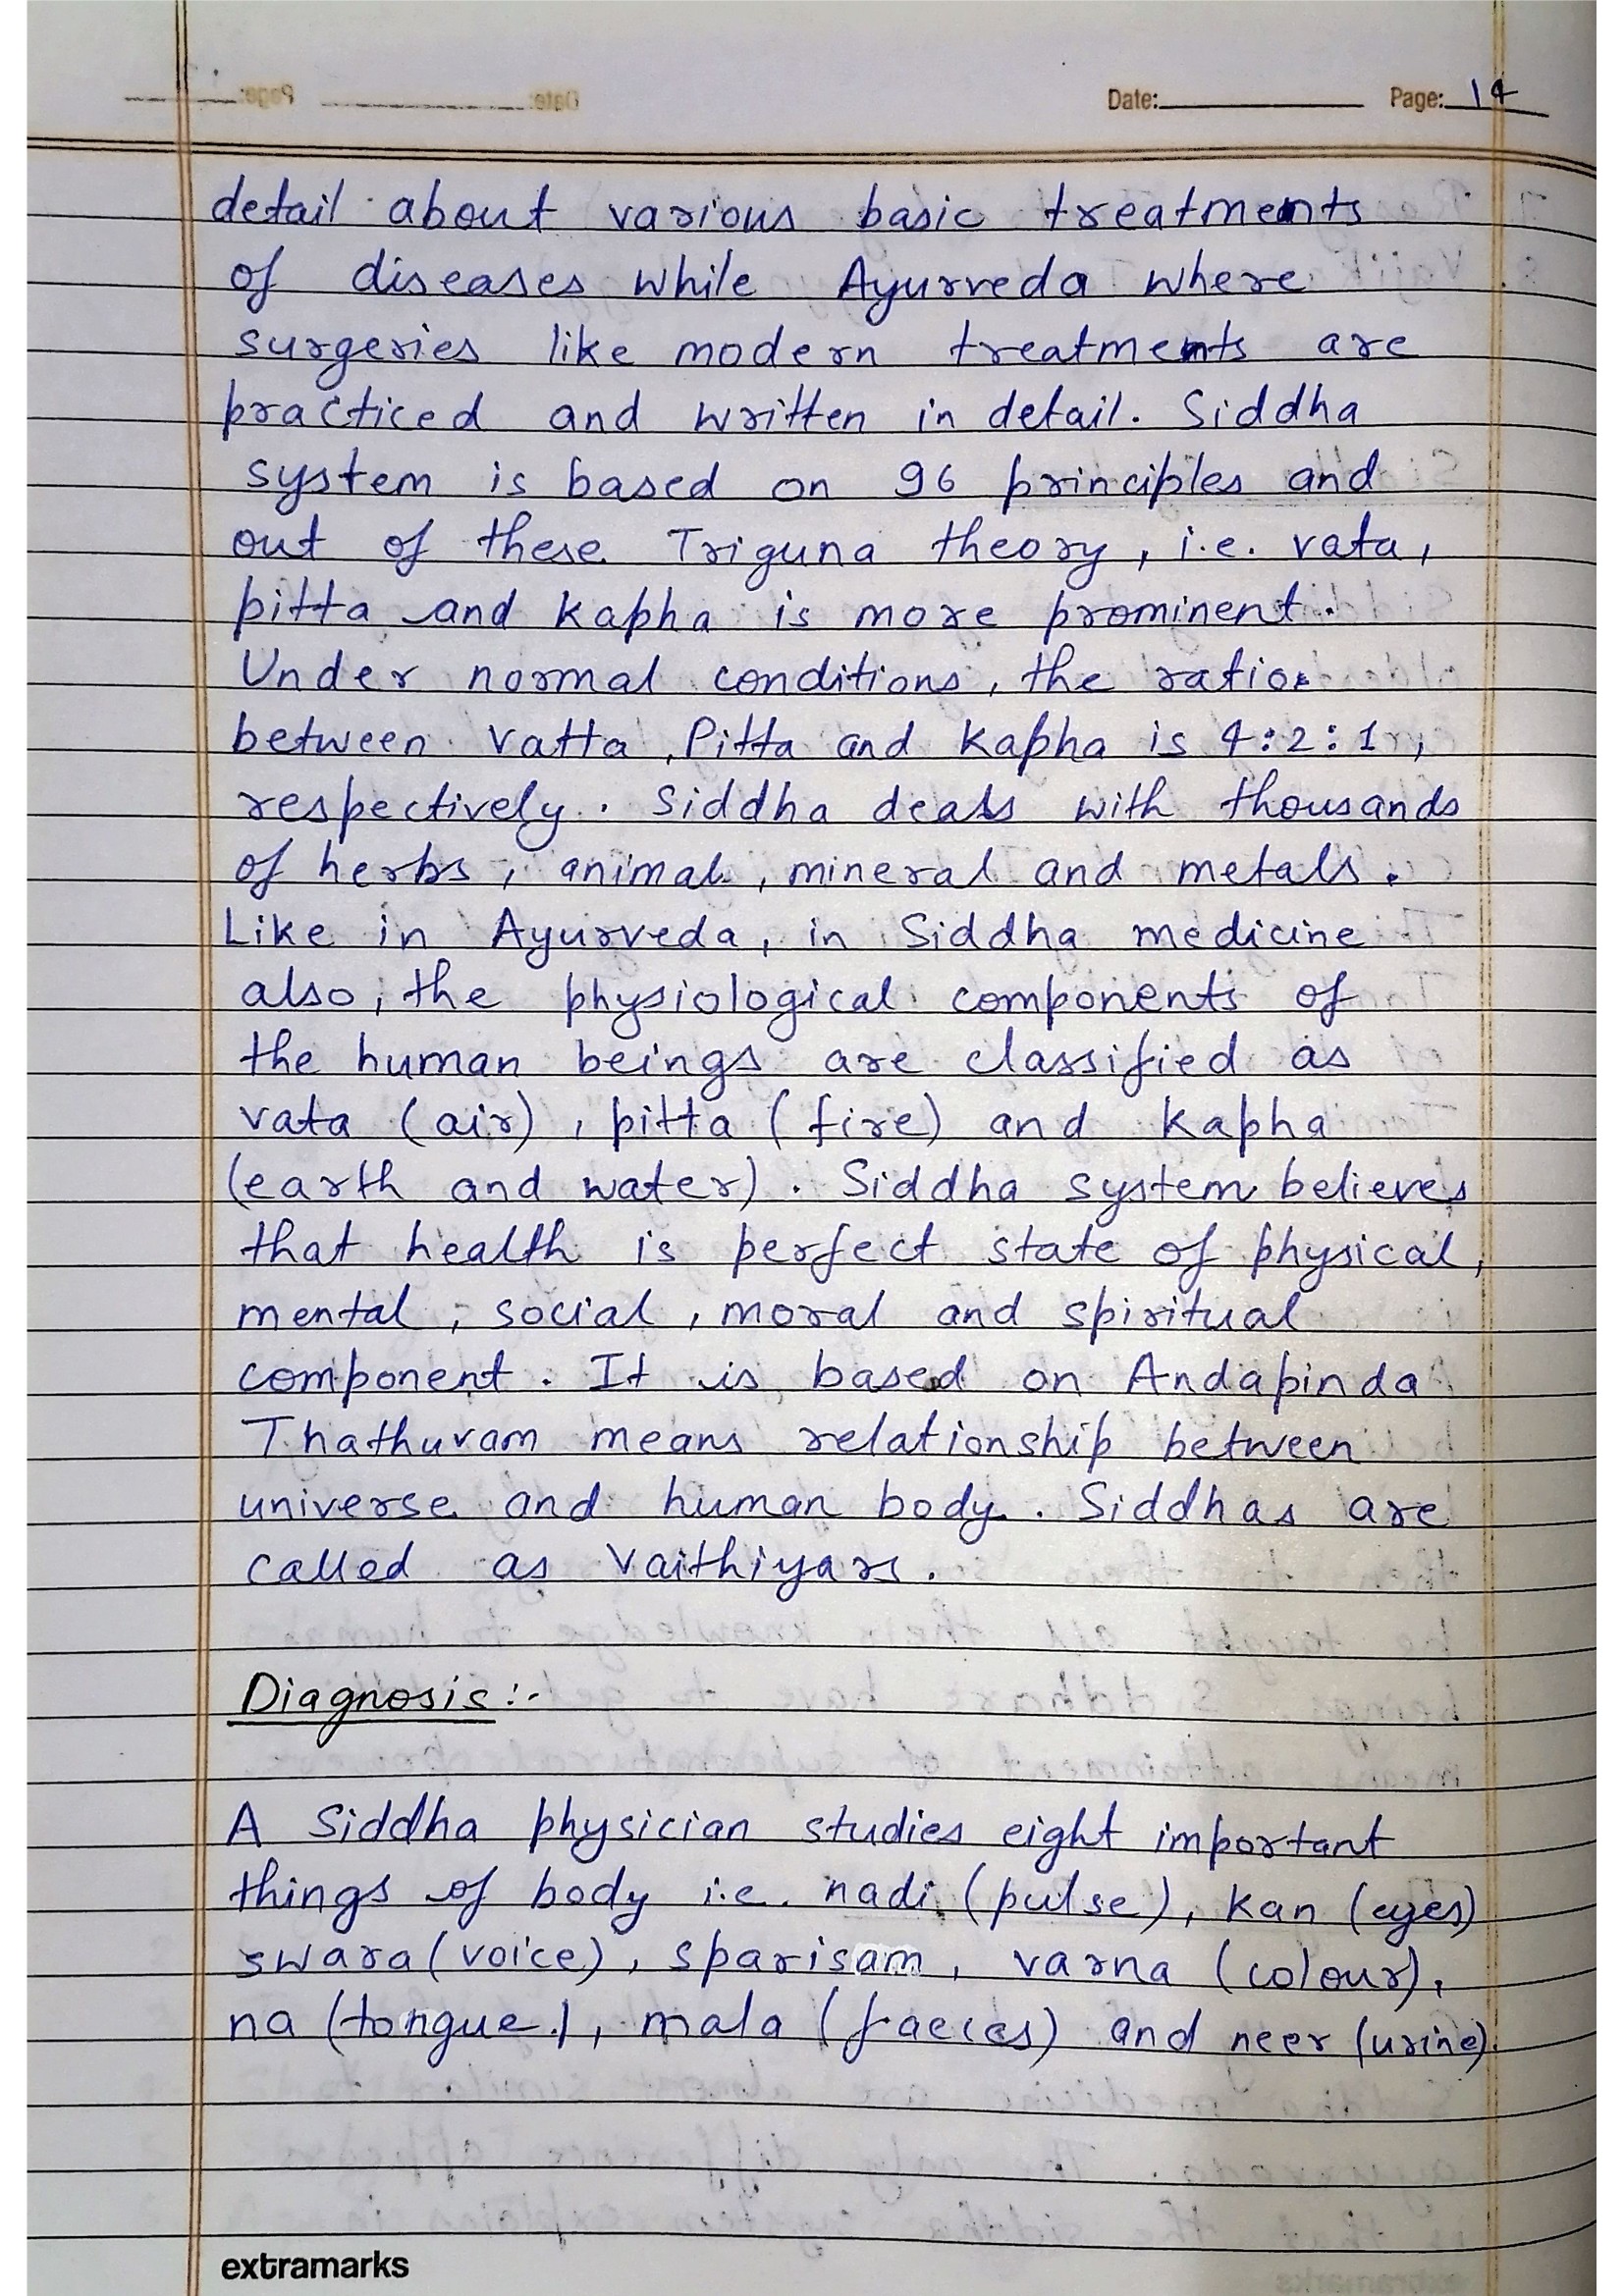 Date: Page: 14
detail about various basic treatments
of diseases while Ayurveda where
surgeries like modern treatments are
practiced and written in detail. Siddha
system is based on 96 principles and
out of these Triguna theory, i.e. vata,
pitta and kapha is more prominent.
Under normal conditions, the ratio
between vatta, Pitta and kapha is 4:2:1,
respectively. Siddha deals with thousands
of herbs, animal, mineral and metals.
Like in Ayurveda, in Siddha medicine
also, the physiological components of
the human beings are classified as
vata (air), pitta (fire) and kapha
(earth and water). Siddha system believes
that health is perfect state of physical,
mental, social, moral and spiritual
component. It is based on Andapinda
Thathuvam means relationship between
universe and human body. Siddhas are
called as Vaithiyars.
Diagnosis:-
A Siddha physician studies eight important
things of body i.e. nadi (pulse), kan (eyes)
swara (voice), sparisam, varna (colour),
na (tongue), mala (faeces) and neer (urine).
extramarks